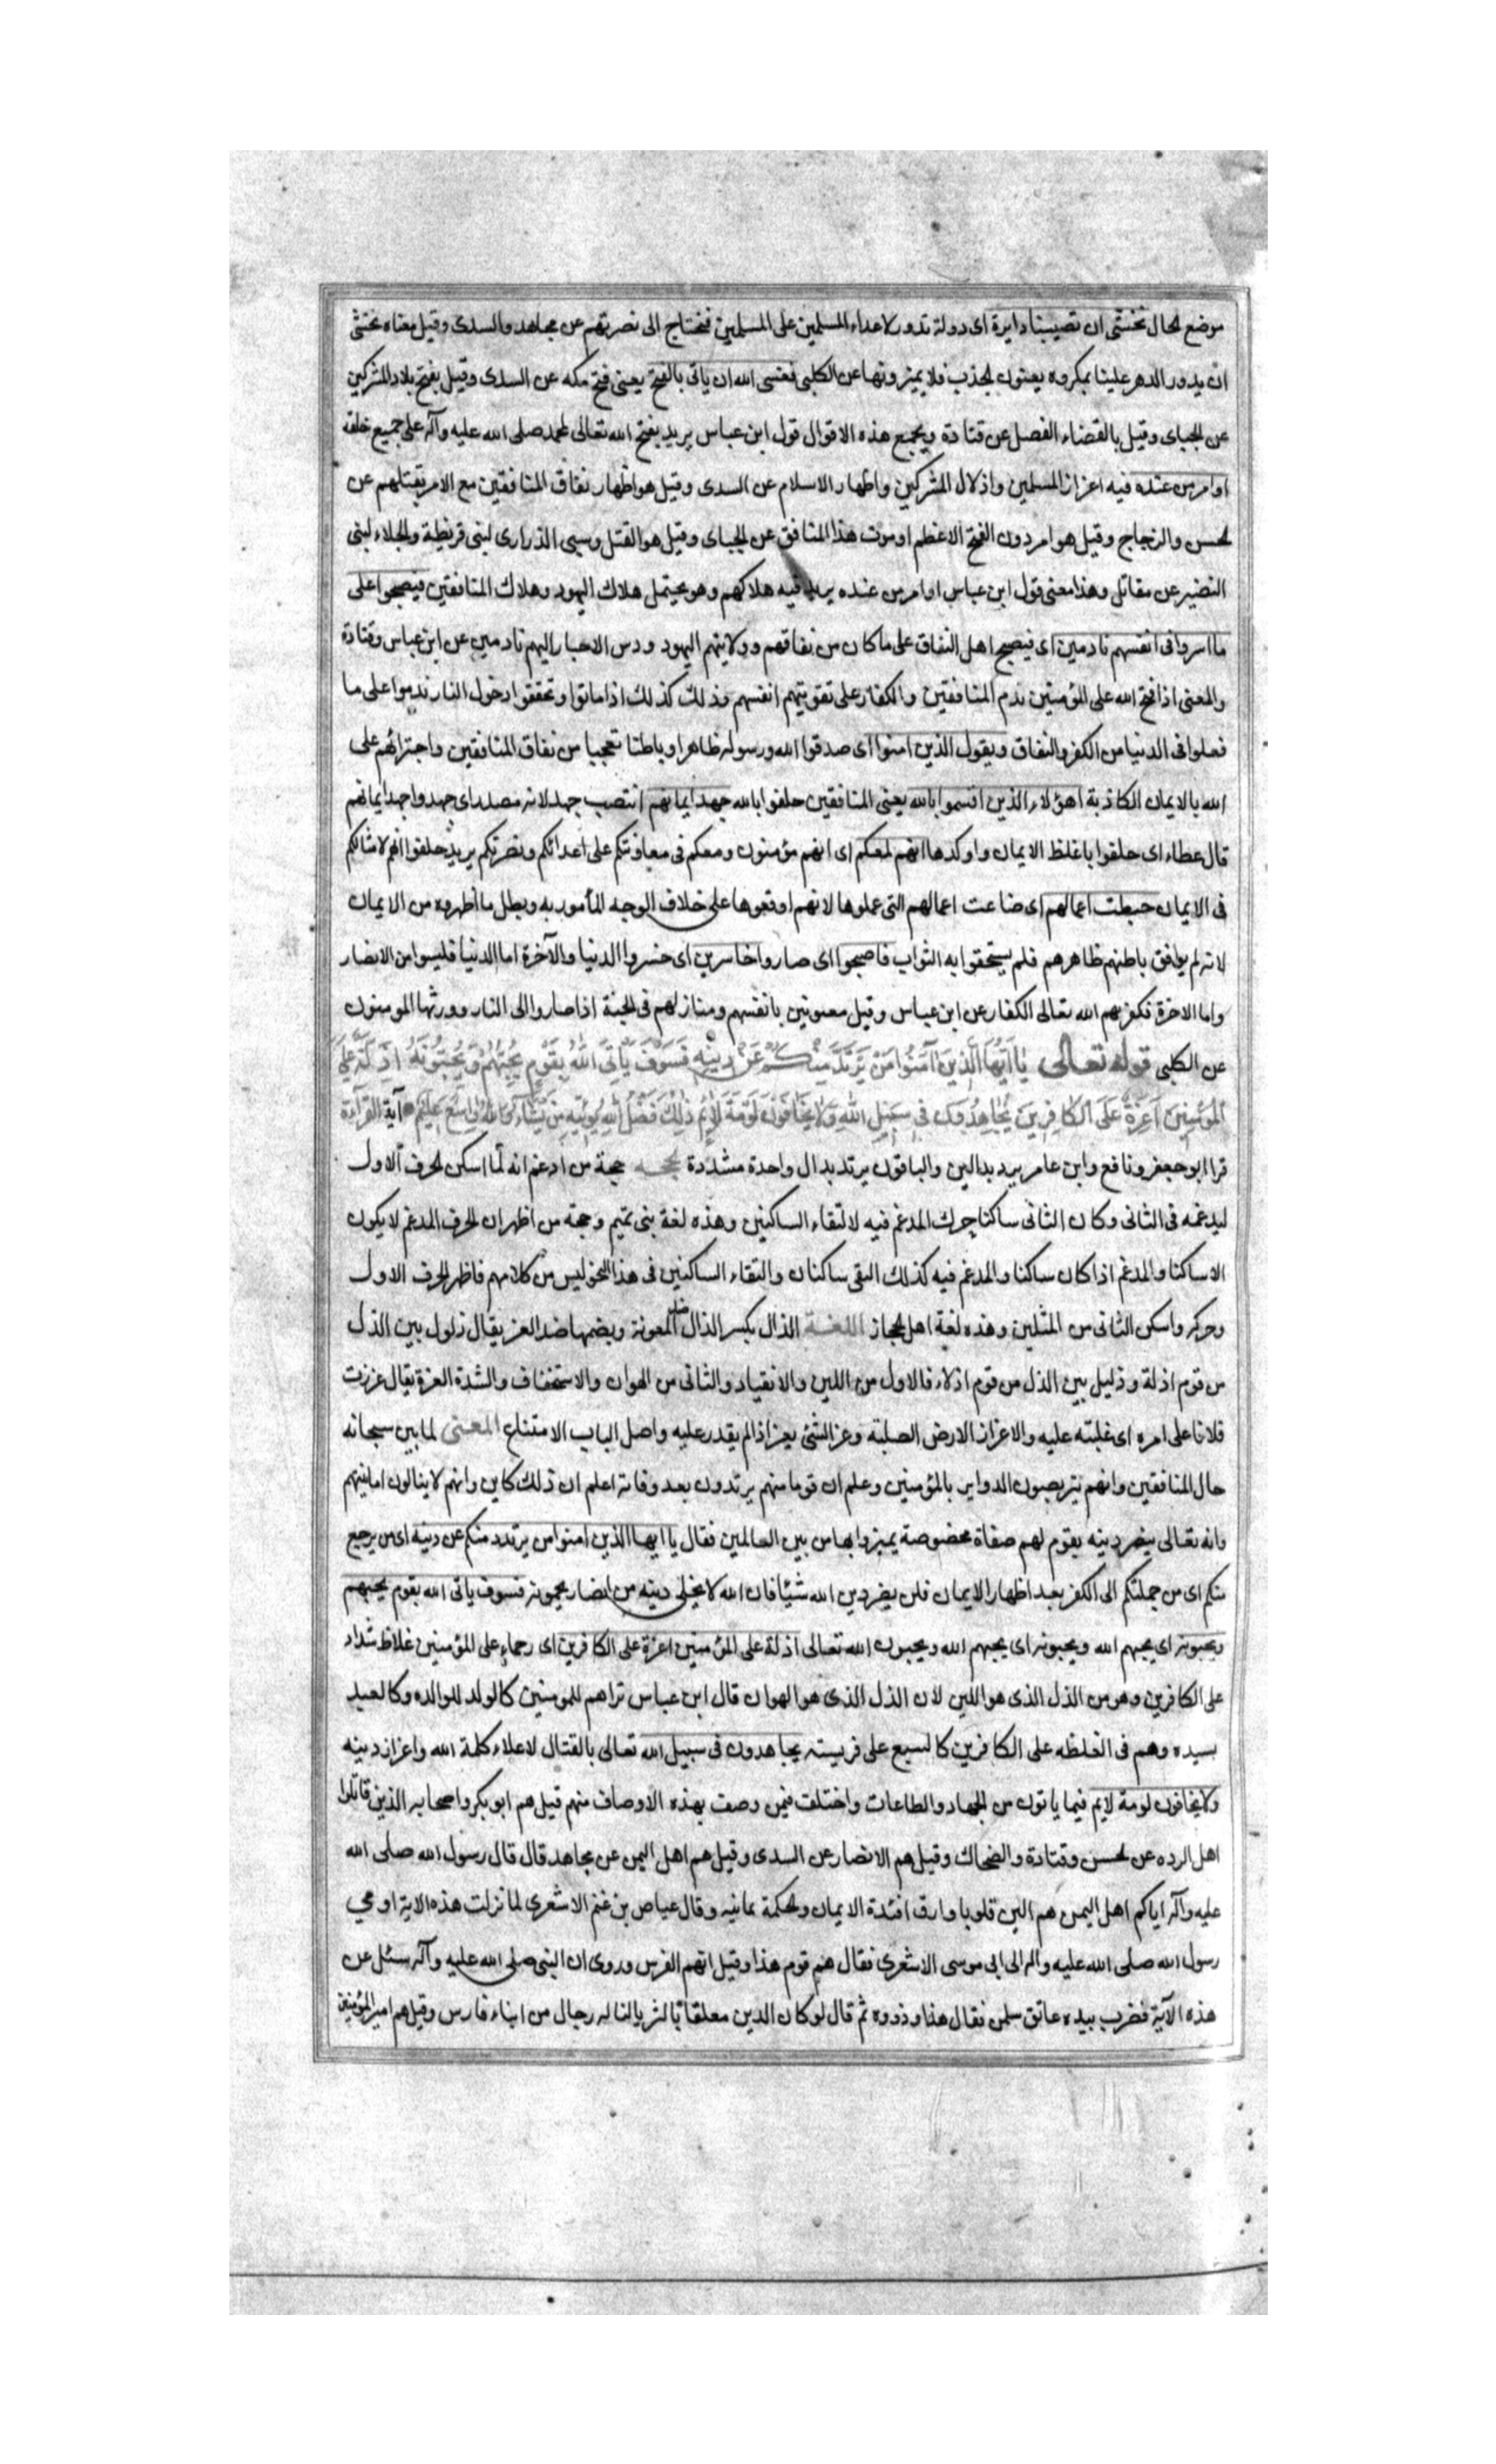 موضع الحال نخشى ان تصيبنا دايرة اى دولة تدور لاعداء المسلمين على المسلمين فنحتاج الى نصرتهم عن مجاهد والسدى وقيل معناه نخشى
ان يدور الدهر علينا بمكروه يعنون الجذب فلا يميزونها عن الكلبى فعسى الله ان ياتى بالفتح يعنى فتح مكه عن السدى وقيل بفتح بلاد المشركين
عن الجباى وقيل بالقضاء الفصل عن قتادة ويجمع هذه الاقوال قول ابن عباس يريد بفتح الله تعالى لمحمد صلى الله عليه وآله على جميع خلقه
او امر من عنده فيه اعزاز المسلمين واذلال المشركين واظهار الاسلام عن السدى وقيل هو اظهار نفاق المنافقين مع الامر بقتلهم عن
الحسن والزجاج وقيل هو امر دون الفتح الاعظم او موت هذا المنافق عن الجباى وقيل هو القتل وسبى الذرارى لبنى قريظة والجلاء لبنى
النضير عن مقاتل وهذا معنى قول ابن عباس او امر من عنده يريد فيه هلاكهم وهو يحتمل هلاك اليهود وهلاك المنافقين فيصبحوا على
ما اسروا فى انفسهم نادمين اى فيصبح اهل النفاق على ما كان من نفاقهم وولايتهم اليهود ودس الاخبار اليهم نادمين عن ابن عباس وقتادة
والمعنى اذا فتح الله على المؤمنين ندم المنافقين والكفار على تفويتهم انفسهم وذلك كذلك اذا ماتوا وتحققوا دخول النار ندموا على ما
فعلوا فى الدنيا من الكفر والنفاق ويقول الذين امنوا اى صدقوا الله ورسوله ظاهرا وباطنا تعجبا من نفاق المنافقين واجترائهم على
الله بالايمان الكاذبة اهؤلاء الذين اقسموا بالله يعنى المنافقين حلفوا بالله جهد ايمانهم انتصب جهد لانه مصدر اى جهدوا جهد ايمانهم
قال عطاء اى حلفوا باغلظ الايمان واوكدها انهم لمعكم اى انهم مؤمنون ومعكم فى معاونتكم على اعدائكم ونصرتكم يريد حلفوا انهم لامثالكم
فى الايمان حبطت اعمالهم اى ضاعت اعمالهم التى عملوها لانهم اوقعوها على خلاف الوجه المأمور به وبطل ما اظهروه من الايمان
لانه لم يوافق باطنهم ظاهرهم فلم يستحقوا به الثواب فاصبحوا اى صاروا خاسرين اى خسروا الدنيا والآخرة اما الدنيا فليسوا من الانصار
واما الاخرة فكفر بهم الله تعالى الكفار عن ابن عباس وقيل معنونين بانفسهم ومنازلهم فى الجنة اذا صاروا الى النار وورثها المومنون
عن الكلبى قوله تعالى يَا اَيُّهَا الَّذِينَ آمَنُوا مَنْ يَرْتَدَّ مِنْكُمْ عَنْ دِينِهِ فَسَوْفَ يَأْتِى اللَّهُ بِقَوْمٍ يُحِبُّهُمْ وَيُحِبُّونَهُ اَذِلَّةٍ عَلَى
الْمُؤْمِنِينَ اَعِزَّةٍ عَلَى الْكَافِرِينَ يُجَاهِدُونَ فِى سَبِيلِ اللَّهِ وَلَا يَخَافُونَ لَوْمَةَ لَائِمٍ ذَلِكَ فَضْلُ اللَّهِ يُؤْتِيهِ مَنْ يَشَاءُ وَاللَّهُ وَاسِعٌ عَلِيمٌ آية القراءة
قرا ابو جعفر ونافع وابن عامر يرتدد بدالين والباقون يرتد بدال واحدة مشددة الحجة حجة من ادغم انه لما اسكن الحرف الاول
ليدغمه فى الثانى وكان الثانى ساكنا حرك المدغم فيه لالتقاء الساكنين وهذه لغة بنى تميم وحجة من اظهر ان الحرف المدغم لا يكون
الا ساكنا والمدغم اذا كان ساكنا والمدغم فيه كذلك التقى ساكنان والتقاء الساكنين فى هذا النحو ليس من كلامهم فاظهر الحرف الاول
وحركه واسكن الثانى من المثلين وهذه لغة اهل الحجاز اللغة الذال بكسر الذال ضد الصعوبة وبضمها ضد العز يقال ذلول بين الذل
من قوم اذلة وذليل بين الذل من قوم اذلاء فالاول من اللين والانقياد والثانى من الهوان والاستخفاف والشدة العزة يقال عززت
فلانا على امره اى غلبته عليه والاعزاز الارض الصلبة وعز الشئ يعز اذا لم يقدر عليه واصل الباب الامتناع المعنى لما بين سبحانه
حال المنافقين وانهم يتربصون الدواير بالمؤمنين وعلم ان قوما منهم يرتدون بعد وفاته اعلم ان ذلك كاين وانهم لا ينالون امانيهم
وانه تعالى ينصر دينه بقوم لهم صفاة مخصوصة يميزوا بها من بين العالمين فقال يا ايها الذين امنوا من يرتدد منكم عن دينه اى من يرجع
منكم اى من جملتكم الى الكفر بعد اظهار الايمان فلن يضر دين الله شيئا فان الله لا يخلى دينه من انصار يحمونه فسوف ياتى الله بقوم يحبهم
ويحبونه اى يحبهم الله ويحبونه اى يحبهم الله ويحبون الله تعالى اذلة على المؤمنين اعزة على الكافرين اى رحماء على المؤمنين غلاظ شداد
على الكافرين وهو من الذل الذى هو اللين لان الذل الذى هو الهوان قال ابن عباس تراهم للمومنين كالولد للوالده وكالعبد
بسيده وهم فى الغلظه على الكافرين كالسبع على فريسته يجاهدون فى سبيل الله تعالى بالقتال لاعلاء كلمة الله واعزاز دينه
ولا يخافون لومة لايم فيما ياتون من الجهاد والطاعات واختلف فيمن وصف بهذه الاوصاف منهم قيل هم ابو بكر واصحابه الذين قاتلوا
اهل الرده عن الحسن وقتادة والضحاك وقيل هم الانصار عن السدى وقيل هم اهل اليمن عن مجاهد قال قال رسول الله صلى الله
عليه وآله اياكم اهل اليمن هم الين قلوبا وارق افئدة الايمان والحكمة يمانيه وقال عياض بن غنم الاشعرى لما نزلت هذه الاية اومى
رسول الله صلى الله عليه واله الى ابى موسى الاشعرى فقال هم قوم هذا وقيل انهم الفرس وروى ان النبى صلى الله عليه وآله سئل عن
هذه الآية فضرب بيده عاتق سلمن فقال هذا وذووه ثم قال لو كان الدين معلقا بالثريا لناله رجال من ابناء فارس وقيل هم امير المؤمنين